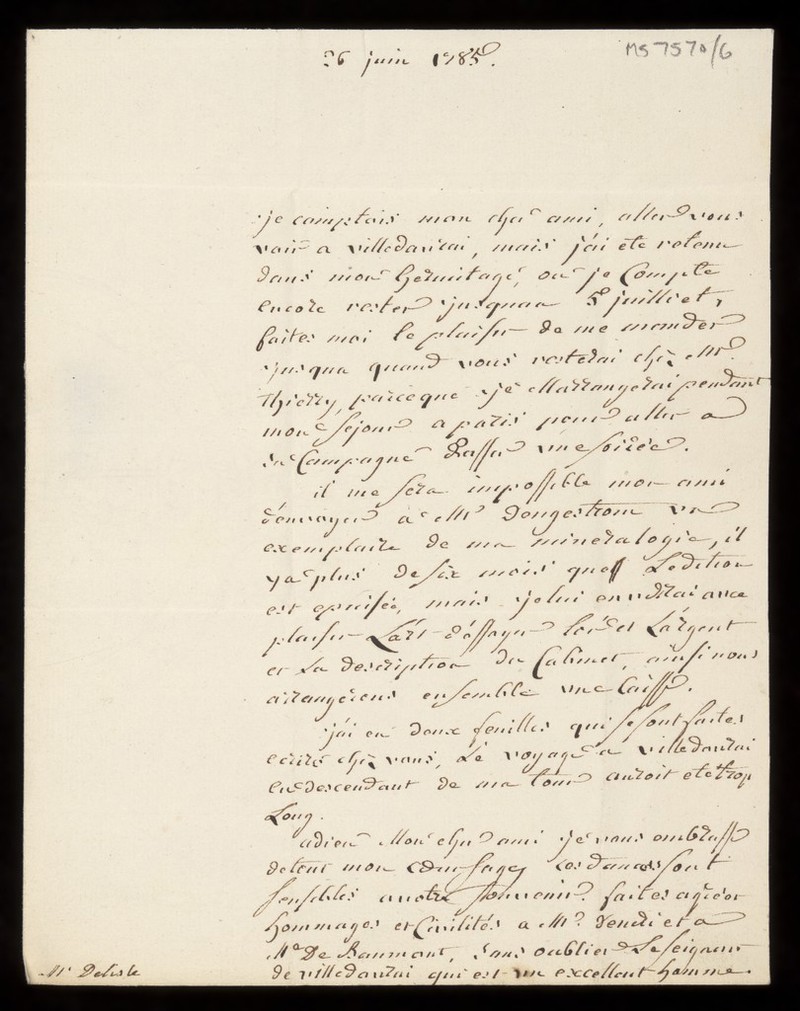 26 juin 1785.
MS 7570/6
je comptois mon cher ami, aller vous
voir a villedavrai, mais j'ai ete retenu
dans mon hermitage, ou je Compte
encore rester jusquau 5 juilliet,
faites moi le plaisir de me mender
jusqua quand vous resterai chez Mr
Thierry, parceque je Marrangerai pendant
mon sejour a paris pour aller a
sa Campagne passer une soirée.
il me sera impossible mon ami
d'envoyer a Mr Dengestrom un
exemplaire de ma mineralogie, il
y a plus de six mois que Ledition
est epuisée, mais je lui enverrai avec
plaisir Lart d'essayer lor et Largent
et La description du Cabinet, ainsi nous
arrangerons ensemble une Caisse.
j'ai eu deux feuilles qui se sont faites
ecrire chez vous, Le voyage a villedavrai
en descendant de ma tour auroit ete trop
Long.
adieu Mon cher ami je vous embrasse
de tout mon cœur sage, Les dames sont
sensibles a votre souvenir. faites agréer
hommages et Civilités a Mr et a
Me De Baumont, sans oublier Le seigneur
de villedavrai qui est un excellent homme.
Mr Delisle